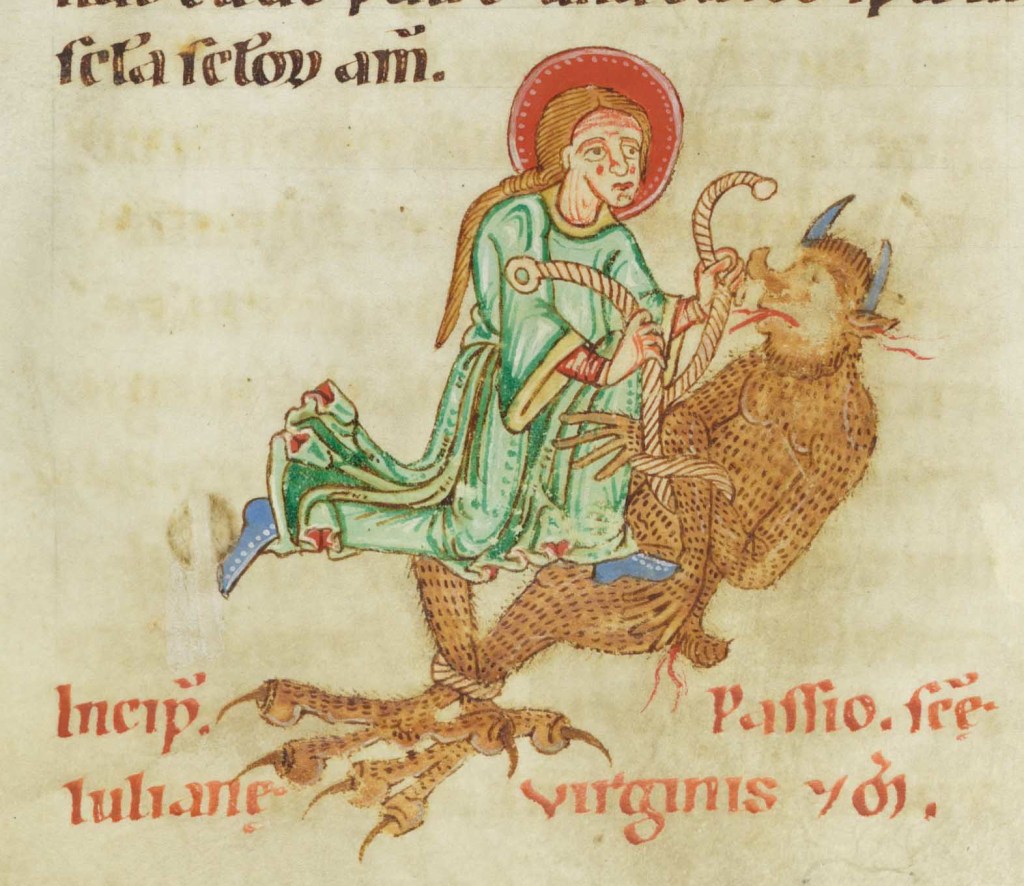 ſcła ſcłoꝝ am̃.
Incip̃. Paſſio. ſcę̃.
Iulianę virginis ⁊ m̃.